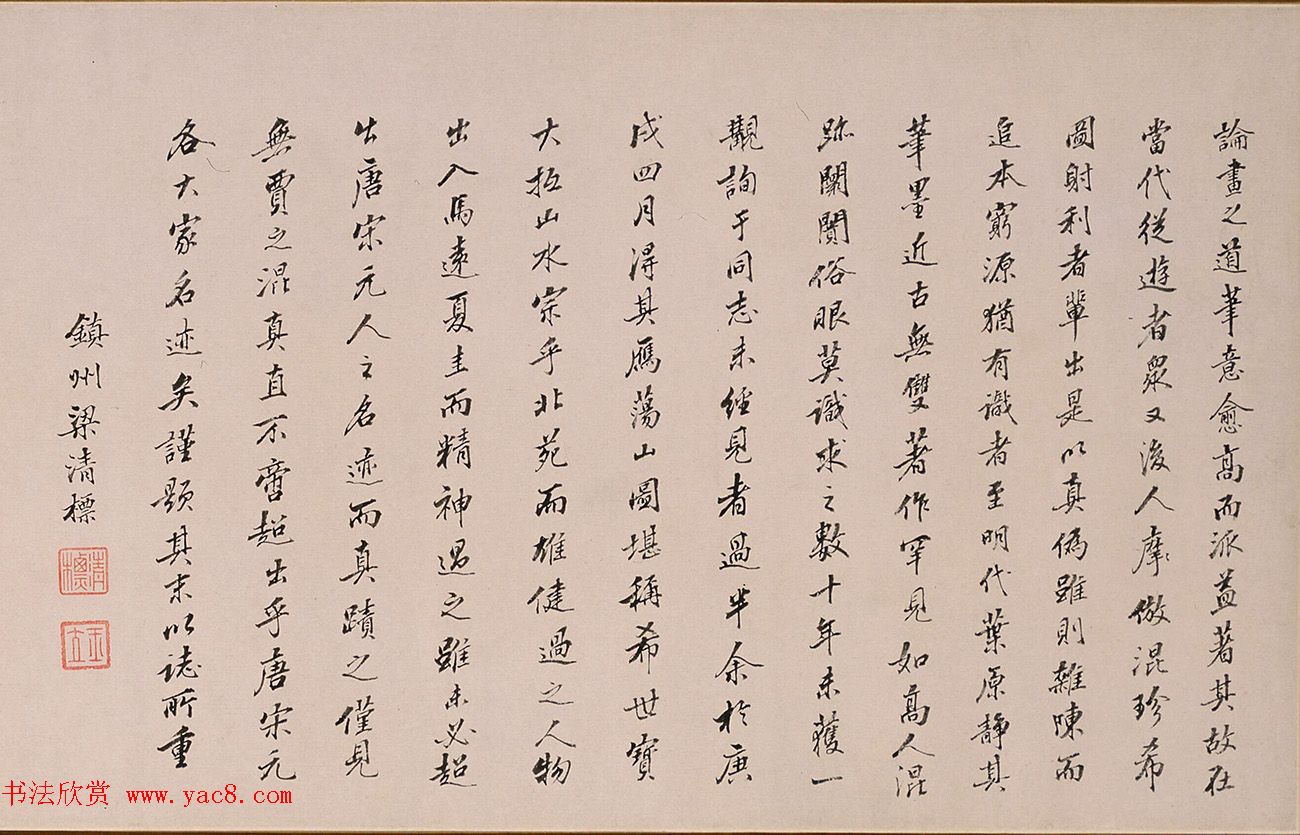 論畫之道筆意愈高而派益著其故在
當代從遊者衆又後人摩倣混珍希
圖射利者輩出是以真偽雖則雜陳而
追本窮源猶有識者至明代葉原靜其
筆墨近古無雙著作罕見如高人混
跡闤闠俗眼莫識求之數十年未獲一
觀詢于同志未經見者過半余於庚
戌四月淂其鴈蕩山圖堪稱希世寶
大抵山水宗乎北苑而雄健過之人物
出入馬遠夏圭而精神過之雖未必超
出唐宋元人之名迹而真蹟之僅見
無賈之混真直不啻超出乎唐宋元
各大家名迹矣謹題其末以誌所重
鎮州梁清標
清標
玉立
书法欣赏 www.yac8.com